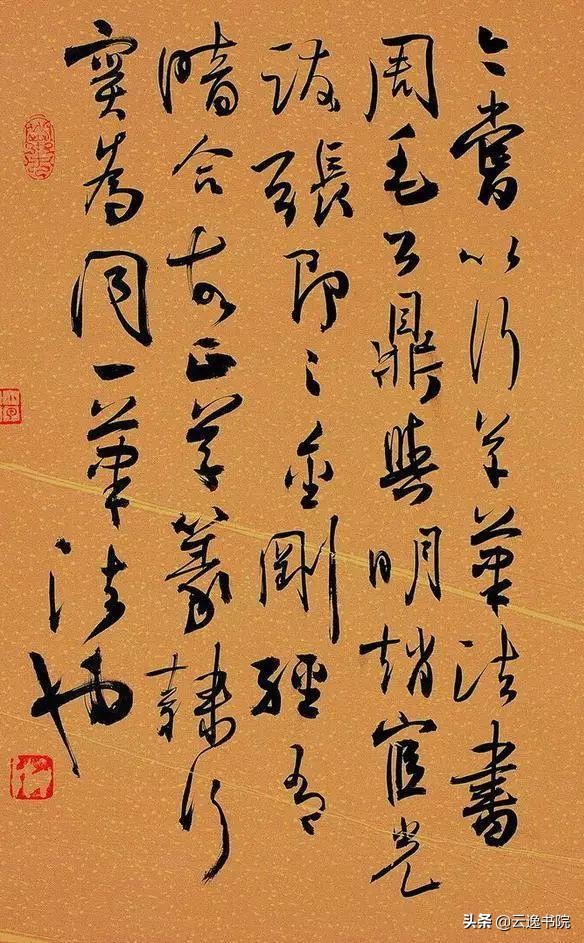 嘗以行草筆法書
周毛公鼎與明趙宦光
跋張即之金剛經有
暗合故正草篆隸行
實為同一筆法也
头条 @云逸书院